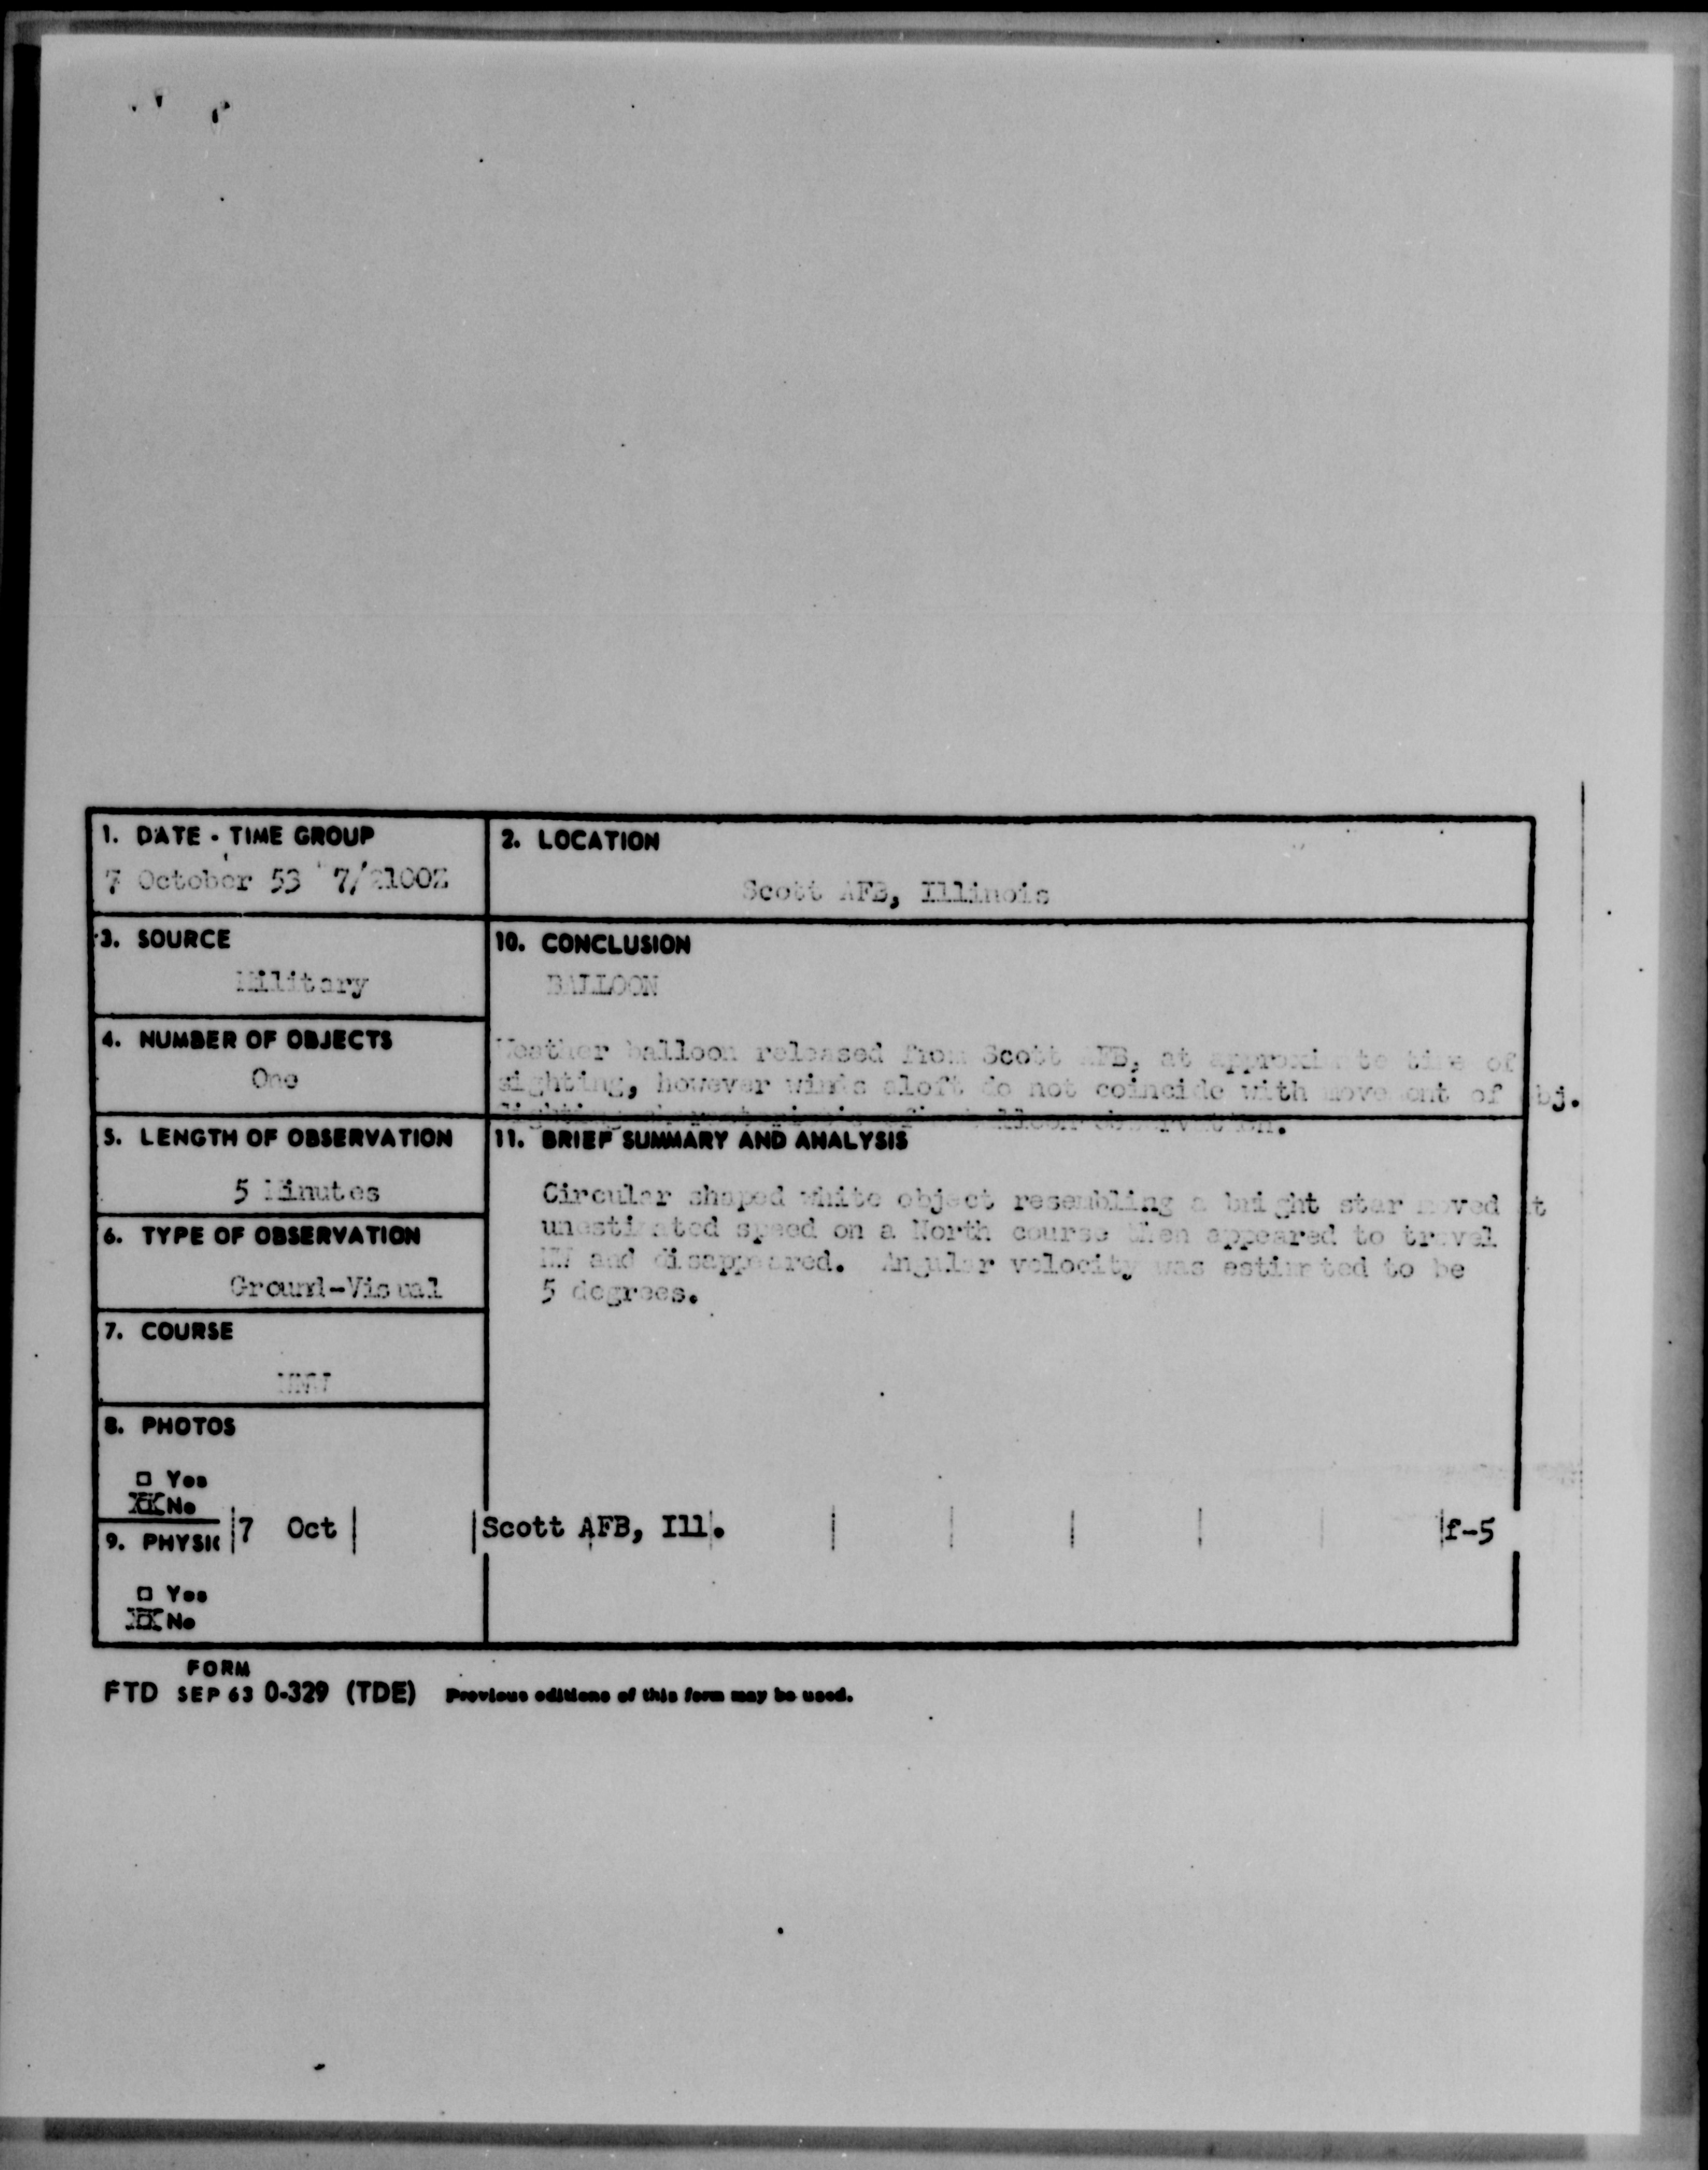 1. DATE - TIME GROUP
7 October 53 7/2100Z
2. LOCATION
Scott AFB, Illinois
3. SOURCE
Military
10. CONCLUSION
BALLOON
Weather balloon released from Scott AFB, at approximate time of
sighting, however winds aloft do not coincide with movement of obj.
4. NUMBER OF OBJECTS
One
5. LENGTH OF OBSERVATION
5 Minutes
11. BRIEF SUMMARY AND ANALYSIS
Circular shaped white object resembling a bright star moved at
unestimated speed on a North course then appeared to travel
NW and disappeared. Angular velocity was estimated to be
5 degrees.
6. TYPE OF OBSERVATION
Ground-Visual
7. COURSE
8. PHOTOS
Yes
No
7 Oct Scott AFB, Ill. f-5
9. PHYSIC
Yes
No
FORM
FTD SEP 63 0-329 (TDE) Previous editions of this form may be used.